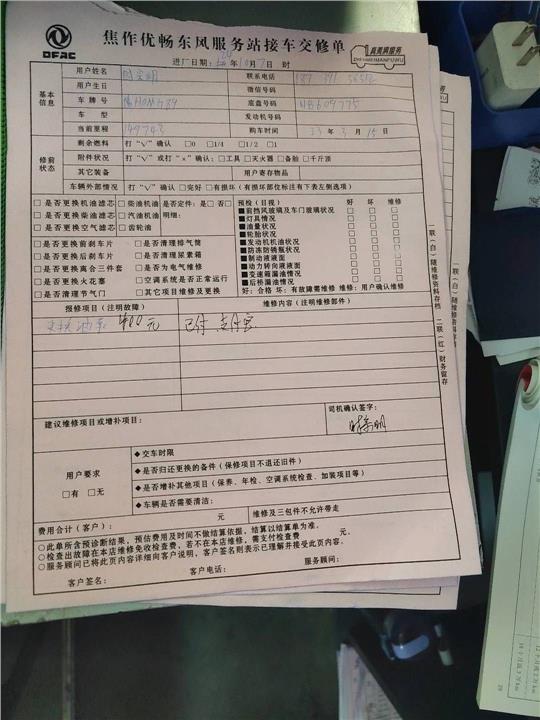 DFAC
焦作优畅东风服务站接车交修单
真真爽服务
进厂日期: 年10月7日 时
基本信息
用户姓名 联系电话
用户生日 微信号码
车牌号 底盘号码 HB609775
车型 发动机号码
当前里程 149743 购车时间 23年3月15日
修前状态
剩余燃料 打“√”确认 □0 □1/4 □1/2 □1
附件状况 打“√”或打“×”确认: □工具 □灭火器 □备胎 □千斤顶
其它装备 用户寄存物品
车辆外部情况 打“√”确认 □完好 □有损坏(有损坏部位标注有下表左侧选项)
□是否更换机油滤芯 □柴油机油 是否定件: 是□ 否□
□是否更换柴油滤芯 □汽油机油 明细:
□是否更换空气滤芯 □齿轮油
□是否更换前刹车片 □是否清理排气筒
□是否更换后刹车片 □是否清理尿素箱
□是否更换离合三件套 □是否为电气维修
□是否更换火花塞 □空调系统是否正常运行
□是否清理节气门 □其它项目维修及更换
预检(目视) 好 坏 维修
■前挡风玻璃及车门玻璃状况 □ □ □
■灯具情况 □ □ □
■油量状况 □ □ □
■轮胎状况 □ □ □
■发动机机油状况 □ □ □
■防冻防锈瓶状况 □ □ □
■制动液液面 □ □ □
■动力转向液液面 □ □ □
■变速箱漏油情况 □ □ □
■后桥漏油情况 □ □ □
好: 合格 坏: 有故障需维修 维修: 用户确认维修
报修项目(注明故障) 维修内容(注明维修部件)
400元 已付 支付宝
建议维修项目或增补项目:
司机确认签字:
用户要求
□有 □无
◆交车时限
◆是否归还更换的备件(保修项目不退还旧件)
◆是否增补其他项目(保养、年检、空调系统检查、加装项目等)
◆车辆是否需要清洁:
费用合计(客户): 元 维修及三包件不允许带走
○此单所含预诊断结果,预估费用及时间不做结算依据,结算以结算单为准。
○检查出故障在本店维修免收检查费,若不在本店维修,需支付检查费 元。
○服务顾问已将此页内容详细向客户说明,客户签名则表示已理解并接受此页内容。
客户签名: 客户电话: 服务顾问:
一联(白)随维修资料存档 二联(红)财务留存